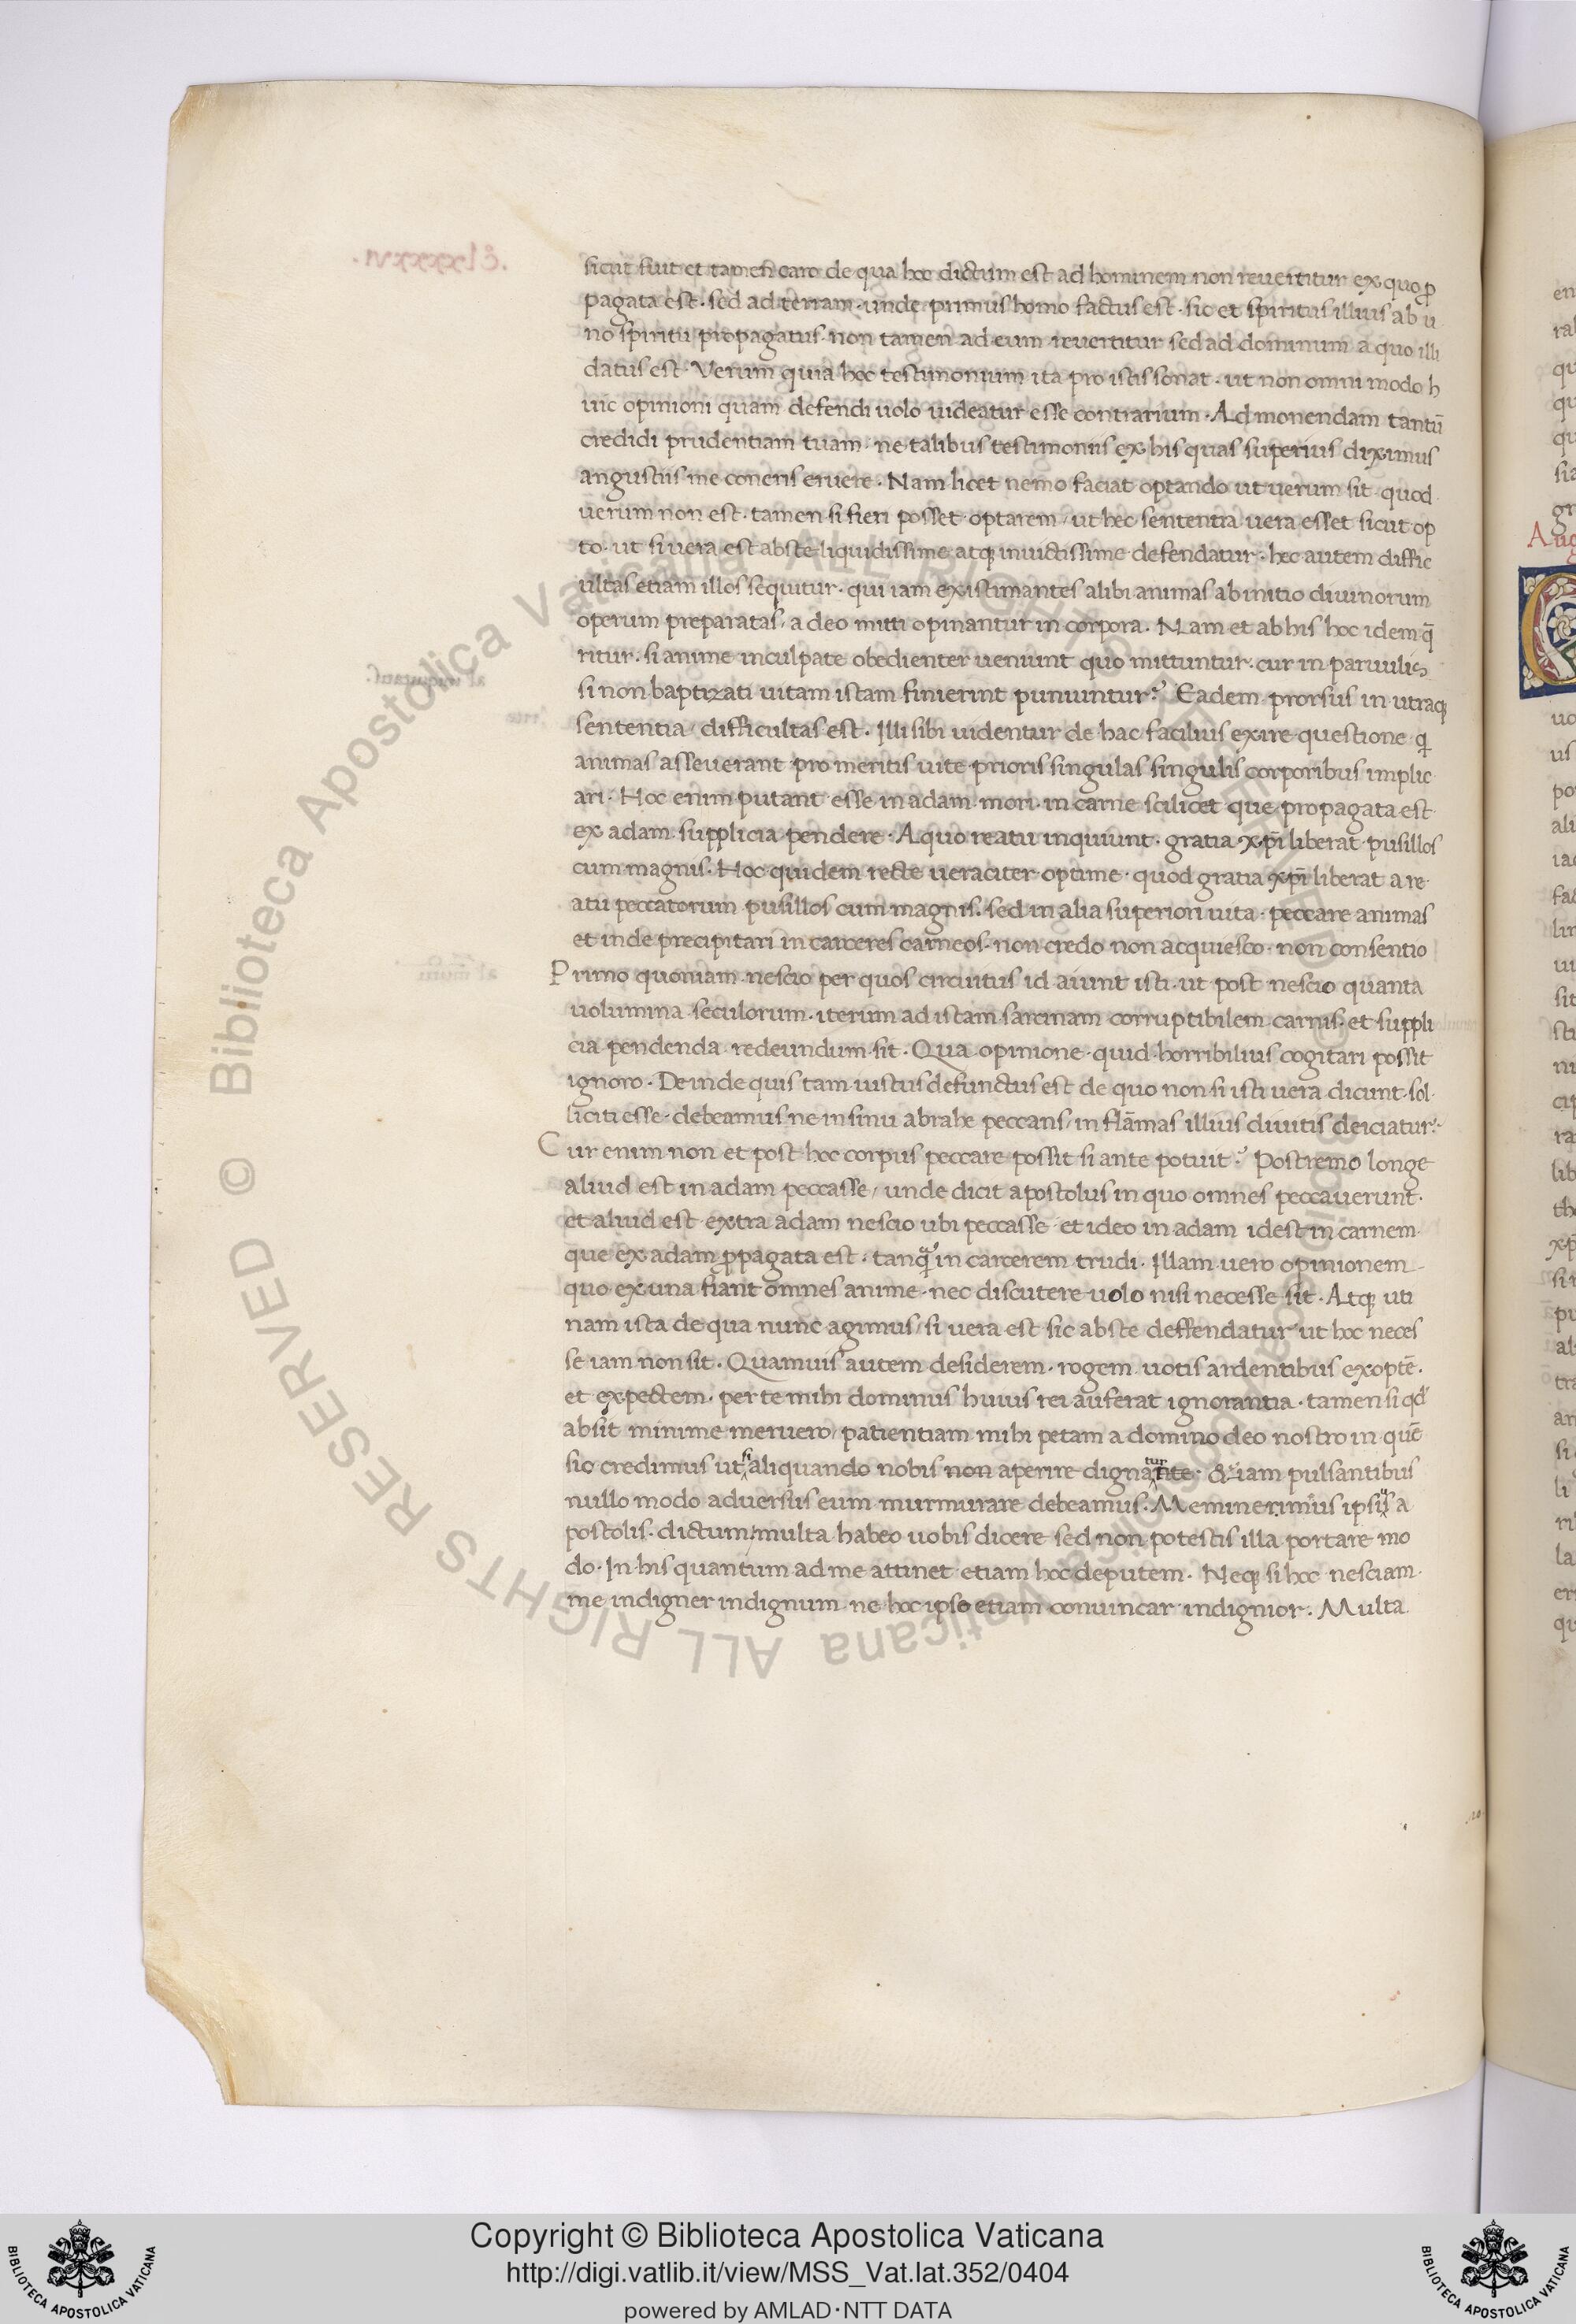 sicut fuit et tamen caro de qua hoc dictum est ad hominem non reuertitur ex quo ꝓ
pagata est · sed ad terram · unde primus homo factus est · sic et spiritus illius ab u
no spiritu propagatus · non tamen ad eum reuertitur sed ad dominum a quo illi
datus est · Verum quia hoc testimonium ita pro istis sonat · ut non omni modo h
uic opinioni quam defendi uolo uideatur esse contrarium · Admonendam tantū
credidi prudentiam tuam · ne talibus testimoniis ex his quas superius diximus
angustiis me coneris eruere · Nam licet nemo faciat optando ut uerum sit · quod
uerum non est · tamen si fieri posset · optarem / ut hec sententia uera esset sicut op
to · ut si uera est abste liquidissime atqꝫ inuictissime defendatur · hec autem diffic
ultas etiam illos sequitur · qui iam existimantes alibi animas ab initio diuinorum
operum preparatas / a deo mitti opinantur in corpora · Nam et ab his hoc idem q̄
ritur · si anime inculpate obedienter ueniunt quo mittuntur · cur in paruulis
si non baptizati uitam istam finierint puniuntur? Eadem prorsus in utraqꝫ
sententia / difficultas est · Illi sibi uidentur de hac facilius exire questione q
animas asseuerant pro meritis uite prioris singulas singulis corporibus implic
ari · Hoc enim putant esse in adam mori · in carne scilicet que propagata est
ex adam supplicia pendere · A quo reatu inquiunt · gratia xp̄i liberat pusillos
cum magnis · Hoc quidem recte ueraciter optime · quod gratia xp̄i liberat a re
atu peccatorum pusillos cum magnis · sed in alia superiori uita · peccare animas
et inde precipitari in carceres carneos · non credo non acquiesco · non consentio
Primo quoniam nescio per quos circuitus id aiunt isti · ut post nescio quanta
uolumina seculorum · iterum ad istam sarcinam corruptibilem carnis · et suppli
cia pendenda redeundum sit · Qua opinione · quid horribilius cogitari possit
ignoro · Deinde quis tam iustus defunctus est de quo non si isti uera dicunt · sol
liciti esse debeamus ne in sinu abrahe peccans / in flāmas illius diuitis deiciatur?
Cur enim non et post hoc corpus peccare possit si ante potuit? Postremo longe
aliud est in adam peccasse / unde dicit apostolus in quo omnes peccauerunt ·
et aliud est extra adam nescio ubi peccasse et ideo in adam idest in carnem
que ex adam ꝓpagata est · tanq̄ in carcerem trudi · Illam uero opinionem
quo ex una fiant omnes anime · nec discutere uolo nisi necesse sit · Atqꝫ uti
nam ista de qua nunc agimus / si uera est sic abste deffendatur ut hoc neces
se iam non sit · Quamuis autem desiderem · rogem uotis ardentibus exoptē ·
et expectem · per te mihi dominus huius rei auferat ignorantia · tamen si qd
absit minime meruero / patientiam mihi petam a domino deo nostro in quē
sic credimus ut si aliquando nobis non aperire dignante tur · & iam pulsantibus
nullo modo aduersus eum murmurare debeamus · Meminerimus ipsis a
postolis · dictum / multa habeo uobis dicere sed non potestis illa portare mo
do · In his quantum ad me attinet etiam hoc deputem · Neqꝫ si hoc nesciam
me indigner indignum ne hoc ipso etiam conuincar indignior · Multa
Copyright © Biblioteca Apostolica Vaticana
http://digi.vatlib.it/view/MSS_Vat.lat.352/0404
powered by AMLAD·NTT DATA
BIBLIOTECA APOSTOLICA VATICANA
BIBLIOTECA APOSTOLICA VATICANA
© Biblioteca Apostolica Vaticana ALL RIGHTS RESERVED © Biblioteca Apostolica Vaticana ALL RIGHTS RESERVED